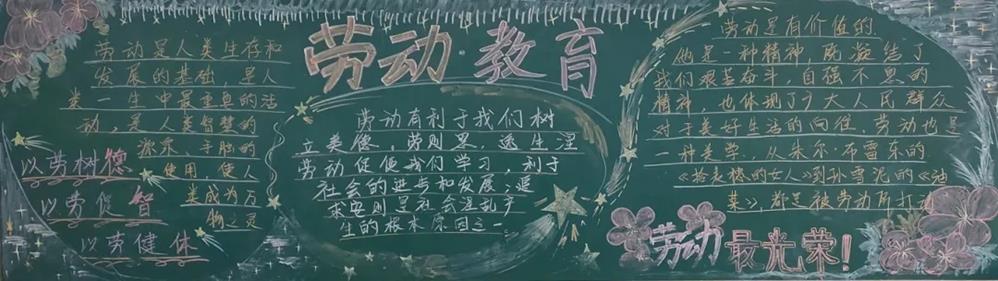 劳动教育
劳动是人类生存和
发展的基础,是人
类一生中最重要的活
动,是人类智慧的
源泉,手脑的
使用,使人
类成为万
物之灵
以劳树德
以劳促智
以劳健体
劳动有利于我们树
立美德,劳则思,逸生淫
劳动促使我们学习,利于
社会的进步和发展,逃
求安则是社会混乱产
生的根本原因之一。
劳动是有价值的
他是一种精神,既凝结了
我们艰苦奋斗,自强不息的
精神,也体现了广大人民群众
对于美好生活的向往,劳动也是
一种美学,从朱尔·布雷东的
《拾麦穗的女人》到孙雪泥的《油
菜》,都是被劳动所打动
劳动最光荣!